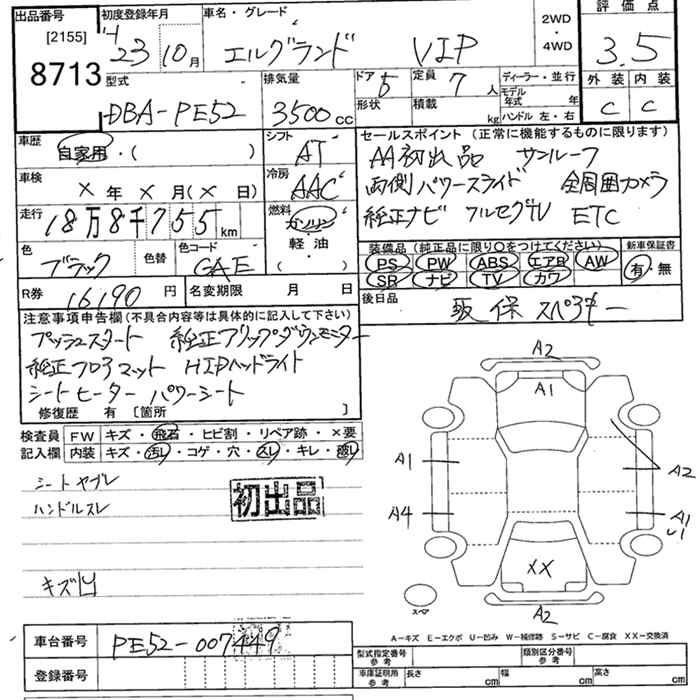 出品番号 初度登録年月 車名・グレード 2WD・4WD 評価点
[2155]
8713
H 23年 10月 エルグランド VIP 3.5
型式 排気量 ドア 定員 ディーラー・並行 外装 内装
DBA-PE52 3500cc 5 7人 C C
形状 積載 kg モデル年式 年 ハンドル 左・右
車歴 自家用・( ) シフト AT
車検 X年X月(X日) 冷房 AAC
走行 18万8千755km 燃料 ガソリン・軽油( )
色 ブラック 色替 色コード GAE
R券 16190円 名変期限 月 日
セールスポイント (正常に機能するものに限ります)
AA初出品 サンルーフ
両側パワースライド 全周囲カメラ
純正ナビ フルセグTV ETC
装備品 (純正品に限り○をつけてください) 新車保証書
PS PW ABS エアB AW 有・無
SR ナビ TV カワ
後日品 取 保 スペアキー
注意事項申告欄(不具合内容等は具体的に記入して下さい)
プッシュスタート 純正フリップダウンモニター
純正フロアマット HIDヘッドライト
シートヒーター パワーシート
修復歴 有 [箇所 ]
検査員 FW キズ・飛石・ヒビ割・リペア跡・×要
記入欄 内装 キズ・汚れ・コゲ・穴・スレ・キレ・破れ
シートヤブレ
ハンドルスレ
初出品
キズ凹
A2
A1
A1 A2
A4 A1
U1
XX
スペア A2
A-キズ E-エクボ U-凹み W-補修跡 S-サビ C-腐食 XX-交換済
車台番号 PE52-007449
登録番号
型式指定番号 参考 類別区分番号 参考
車庫証明用 参考 長さ cm 幅 cm 高さ cm